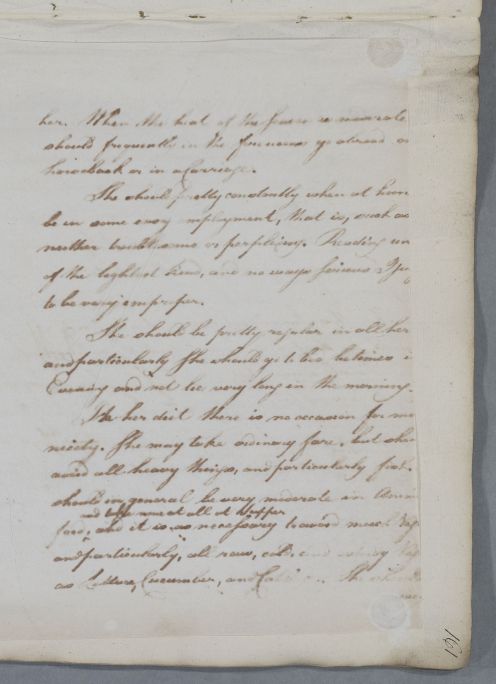 her. When the heat of the season is moderate
should frequently in the forenoons go abroad on
horseback or in a Carriage.
She should pretty constantly when at home
be in some easy employment, that is, such as
neither troublesome or perplexing. Reading
of the lightest kind, and no ways serious
to be very improper.
She should be pretty regular in all her
and particularly She should go to bed betimes
Evening and not lie very long in the morning.
In her diet there is no occasion for
nicety. She may take ordinary fare, but
avoid all heavy things, and particularly fish.
should in general be very moderate in
and take none at all at Supper
food, and it is as necessary to avoid much
and particularly, all raw, cold, and
as Lettuce, Cucumber, and She should
161